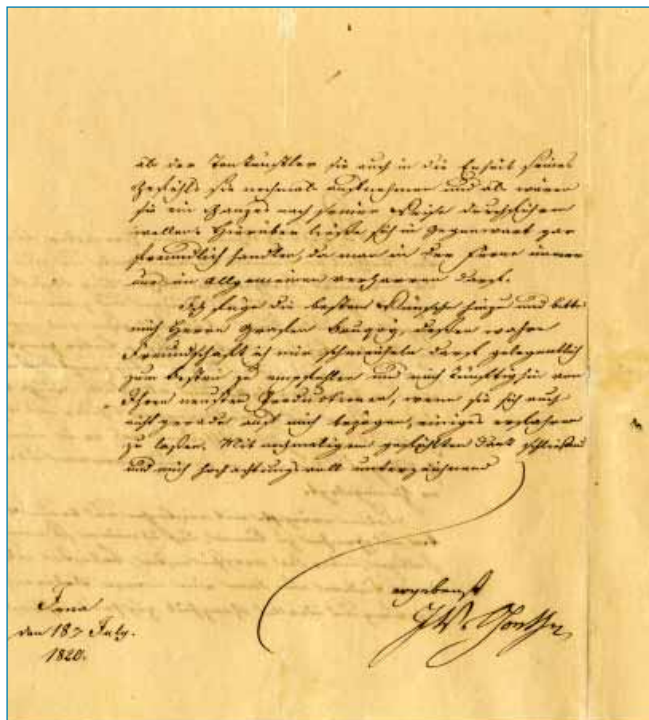 als der Tonkünstler sie auch in die Einheit seines
Gefühls sie nochmals aufnehmen und als wären
sie ein Ganzes nach seiner Weise durchführen
wollen. Hierüber ließe sich in Gegenwart gar
freundlich handlen, da man in der Ferne immer
nur im Allgemeinen verharren darf.
Ich füge die besten Wünsche hinzu und bitte
mich Herrn Grafen Bouquoy, dessen wahre
Freundschaft ich mir schmeicheln darf gelegentlich
zum besten zu empfehlen und mich künftighin von
Ihren neusten Productionen, wenn sie sich auch
nicht gerade auf mich bezögen, einiges erfahren
zu lassen. Mit nochmaligem gefühlten Dank schließend
und mich hochachtungsvoll unterzeichnend
ergebenst
JW. Goethe
Jena
den 18 July.
1820.